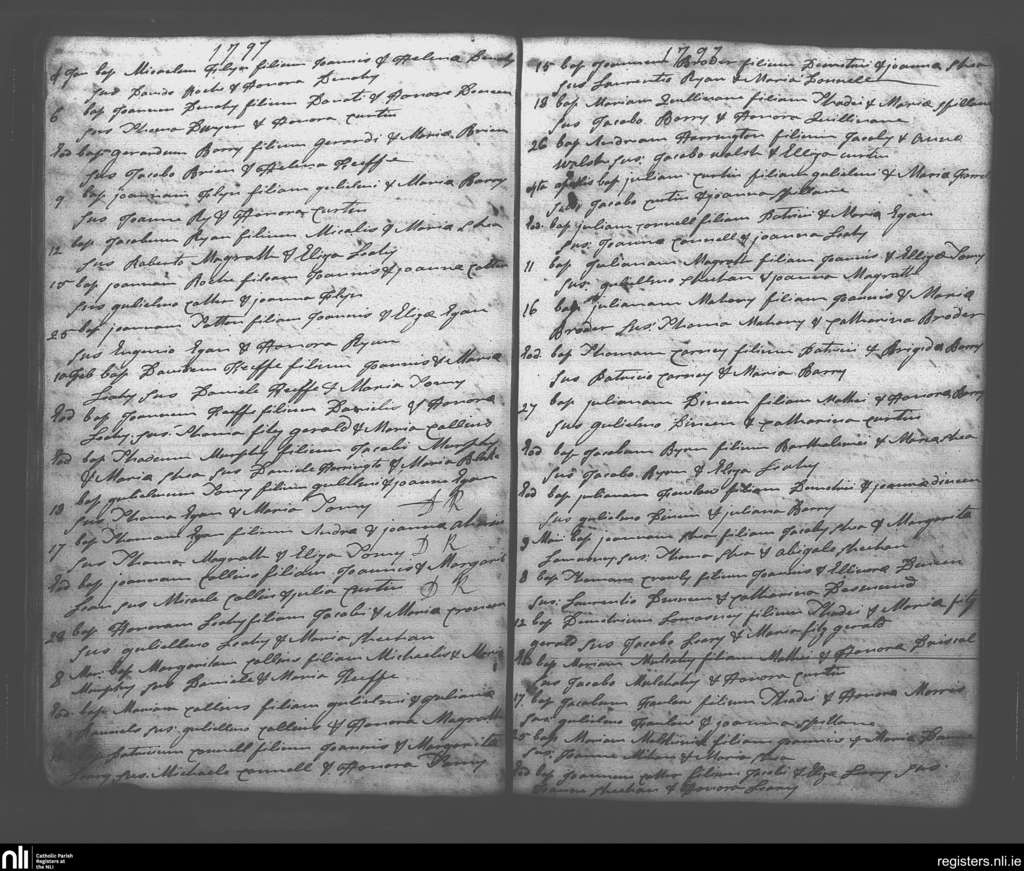 1797
4 Jan bap Micaelem Flyn filium Joannis & Helena Denehy
Sus Davide Roche & Honora Denehy
6 bap Joannem Denehy filium Donati & Honora
Sus Thoma Dwyer & Honora Curtin
Eod bap Gerardum Barry filium Gerardi & Maria Brien
Sus Jacobo Brien & Helena Keiffe
9 bap Joannam Flyn filiam Gulielmi & Maria Barry
Sus Joanne Ry & Honora Curtin
12 bap Jacobum Ryan filium Micalis & Maria Shea
Sus Roberto Magrath & Eliza Leahy
15 bap Joannam Roche filiam Joannis & Joanna Cotter
Sus Gulielmo Cotter & Joanna Flyn
25 bap Joannam Cotter filiam Joannis & Eliza Egan
Sus Eugenio Egan & Honora Ryan
Feb bap Davidem Keiffe filium Joannis & Maria
Leahy Sus Daniele Keiffe & Maria Torney
Eod bap Joannem Keiffe filium Danielis & Honora
Leahy Sus. Thoma fitz gerald & Maria Collins
Eod bap Thadeum Murphy filium Jacobi Murphy
& Maria Shea Sus Daniele Harrington & Maria Blake
13 bap Gulielmum Torney filium Gulielmi & Joanna Egan
Sus. Thoma Egan & Maria Torney D R
17 bap Thomam Egan filium Andrea & Joanna
Sus Thoma Magrath & Eliza Torney D R
Eod bap Joannam Collins filiam Joannis & Margarita
Sus Micaele Collins & Julia Curtin D R
28 bap Honoram Leahy filiam Jacobi & Maria Cronean
Sus Gulielmo Leahy & Maria Sheehan
8 Mar. bap Margaritam Collins filiam Michaelis & Maria
Murphy Sus Daniele & Maria Keiffe
Eod bap. Mariam Collins filiam Gulielmi & Juliana
Sus. Gulielmo Collins & Honora Magrath
bap Patricium Connell filium Joannis & Margarita
Leary Sus. Michaele Connell & Honora Torney
1797
15 bap Joannem Broder filium Demetrii & Joanna Shea
Sus Laurentio Ryan & Maria Donnell
18 bap Mariam Quillinane filiam Thadei & Maria Spillane
Sus Jacobo Barry & Honora Quillinane
26 bap Andream Harrington filium Jacobi & Anna
Walsh Sus. Jacobo Walsh & Elliza Curtin
4ta Aprilis bap Juliam Curtin filiam Gulielmi & Maria
Sus. Jacobo Curtin & Joanna Spillane
Eod. bap Juliam Connell filiam Patricii & Maria Egan
Sus. Joanne Connell & Joanna Leahy
11 bap Julianam Magrath filiam Joannis & Elliza Torney
Sus. Gulielmo Sheehan & Joanna Magrath
16 bap Julianam Mahony filiam Joannis & Maria
Broder Sus. Thoma Mahony & Catharina Broder
Eod bap Thomam Carney filium Patricii & Brigida Barry
Sus Patricio Carney & Maria Barry
27 bap Julianam Dineen filiam Mathei & Honora Barry
Sus Gulielmo Dineen & Catharina Curtin
Eod bap Jacobum Byrn filium Bartholomei & Maria Shea
Sus Jacobo Byrn & Eliza Leahy
Eod bap Julianam Hanlon filiam Demetrii & Joanna Dineen
Sus Gulielmo Dineen & Juliana Barry
3 Maii bap Joannam Shea filiam Jacobi Shea & Margarita
Sus. Thoma Shea & Abigale Sheehan
8 bap Thomam Crowly filium Joannis & Ellinora Dineen
Sus. Laurentio Dineen & Catharina Desmond
12 bap Demetrium filium Thadei & Maria fitz
gerald Sus Jacobo Leary & Maria fitz gerald
bap Mariam Mulcahy filiam Mathei & Honora Driscol
Sus Jacobo Mulchahy & Honora Curtin
17. bap Jacobum Hanlon filium Thadei & Honora Morris
Sus Gulielmo Hanlon & Joanna Spillane
25 bap Mariam filiam Joannis & Maria
Sus. Joanne & Maria Shea
Eod bap Joannem Cotter filium Jacobi & Eliza Leary. Sus.
Joanne Sheehan & Honora Leary
nli
Catholic Parish
Registers at
the NLI
registers.nli.ie